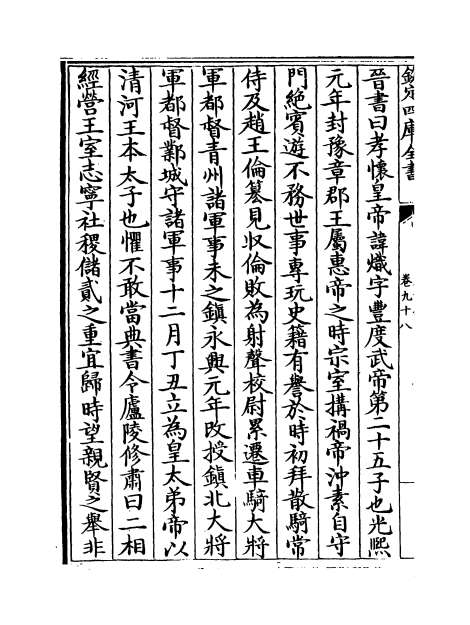 欽定四庫全書
卷九十八
晉書曰孝懷皇帝諱熾字豐度武帝第二十五子也光熈
元年封豫章郡王屬惠帝之時宗室搆禍帝沖素自守
門絶賓遊不務世事專玩史籍有譽於時初拜散騎常
侍及趙王倫簒見収倫敗為射聲校尉累遷車騎大將
軍都督青州諸軍事未之鎮永興元年改授鎮北大將
軍都督鄴城守諸軍事十二月丁丑立為皇太弟帝以
清河王本太子也懼不敢當典書令廬陵修肅曰二相
經營王室志寧社稷儲貳之重宜歸時望親賢之舉非